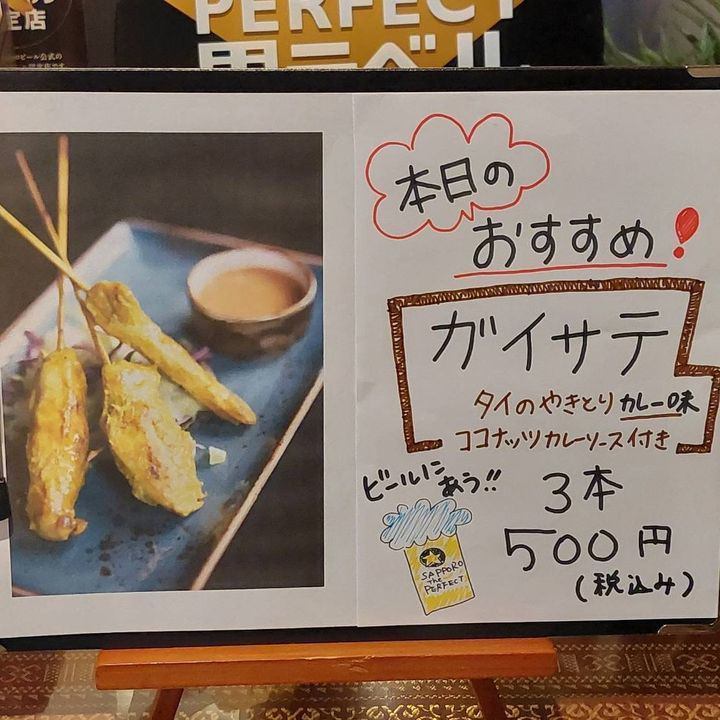 定店
PERFECT
黒ラベル
本日の
おすすめ!
ガイサテ
タイのやきとり カレー味
ココナッツカレーソース付き
ビールに
あう!!
3本
500円
(税込み)
SAPPORO
The
PERFECT